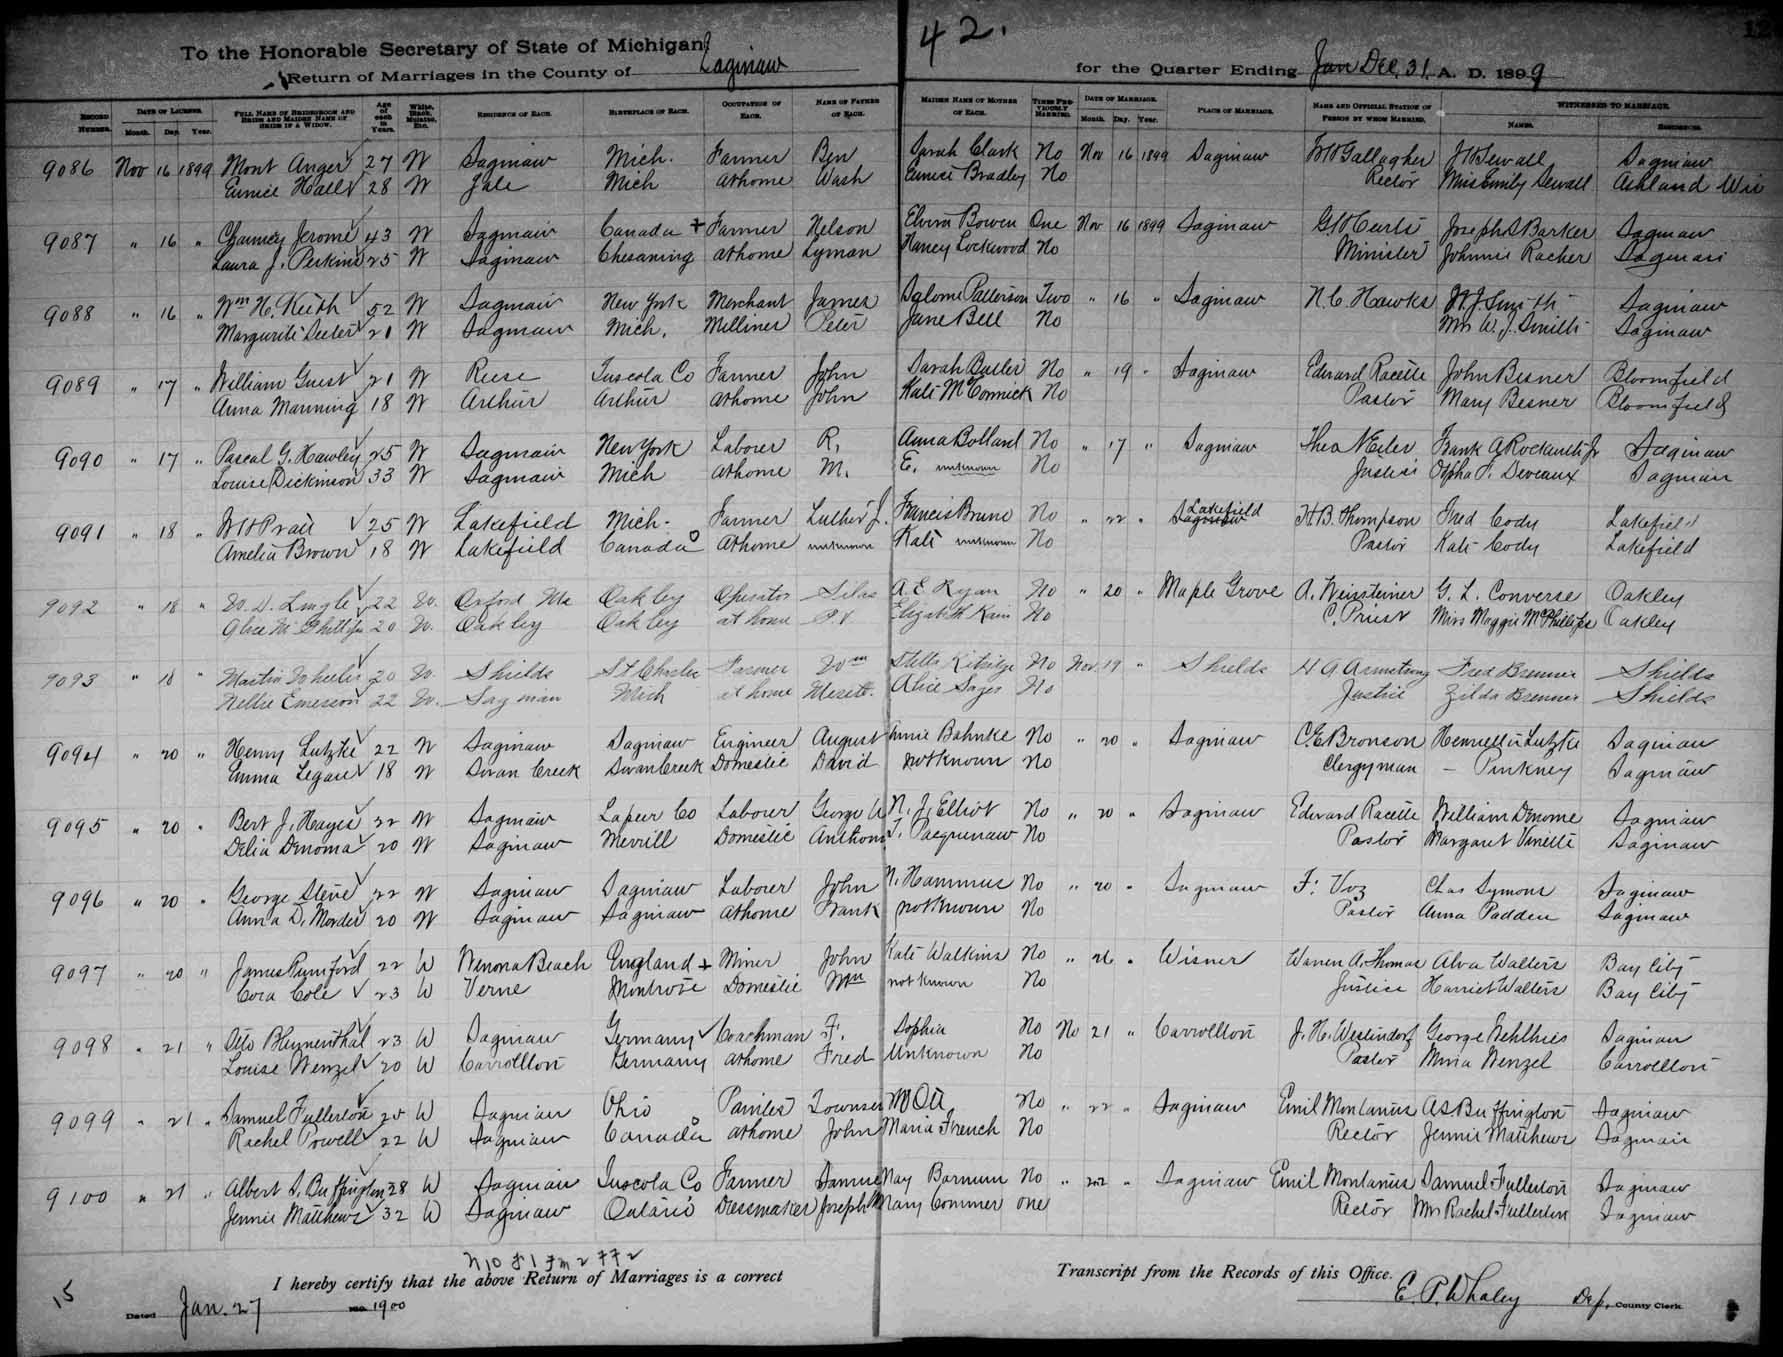 42.
To the Honorable Secretary of State of Michigan,
Return of Marriages in the County of Saginaw for the Quarter Ending Dec 31 A. D. 1899
RECORD NUMBER. DATE OF LICENSE. Month. Day. Year. FULL NAME OF BRIDEGROOM AND BRIDE AND MAIDEN NAME OF BRIDE IF A WIDOW. Age of each in Years. White, Black, Mulatto, Etc. RESIDENCE OF EACH. BIRTHPLACE OF EACH. OCCUPATION OF EACH. NAME OF FATHER OF EACH. MAIDEN NAME OF MOTHER OF EACH. TIMES PREVIOUSLY MARRIED. DATE OF MARRIAGE. Month. Day. Year. PLACE OF MARRIAGE. NAME AND OFFICIAL STATION OF PERSON BY WHOM MARRIED. WITNESSES TO MARRIAGE. NAMES. RESIDENCE.
9086 Nov 16 1899 Mont Anger 27 W Saginaw Mich. Farmer Ben Sarah Clark No Nov 16 1899 Saginaw Gallagher Sewall Saginaw
Eunice Hall 28 W Yale Mich at home Wash Eunice Bradley No Rector Miss Emily Sewall Ashland Wis
9087 " 16 " Chauncy Jerome 43 W Saginaw Canada + Farmer Nelson Elvira Bowen One Nov 16 1899 Saginaw Joseph S Barker Saginaw
Laura J. Perkins 25 W Saginaw Chesaning at home Lyman Nancy Lockwood No Minister Johnnie Racher Saginaw
9088 " 16 " Wm H. Keith 52 W Saginaw New York Merchant James Salome Patterson Two " 16 " Saginaw N. C. Hawks W. J. Smith Saginaw
Marguerite 21 W Saginaw Mich. Milliner Peter Jane Bell No Mrs W. J. Smith Saginaw
9089 " 17 " William Guest 21 W Reese Tuscola Co Farmer John Sarah Butler No " 19 " Saginaw Edward Racette John Besner Bloomfield
Anna Manning 18 W Arthur Arthur at home John Kate McCormick No Pastor Mary Besner Bloomfield
9090 " 17 " Pascal G. Hawley 25 W Saginaw New York Laborer R. Anna Bolland No " 17 " Saginaw Theo N Eiler Frank A Rockwith Jr Saginaw
Louise Dickinson 33 W Saginaw Mich at home M. E. unknown No Justice Orpha F. Deveaux Saginaw
9091 " 18 " W H Pratt 25 W Lakefield Mich. Farmer Luther J. Francis Bruno No " 22 " Lakefield H. B. Thompson Fred Cody Lakefield
Amelia Brown 18 W Lakefield Canada at home unknown Kate unknown No Pastor Kate Cody Lakefield
9092 " 18 " W. D. Lingle 22 W. Oxford Oakley Operator Silas A. E. Ryan No " 20 " Maple Grove A. Weinsteiner G. L. Converse Oakley
Alice McPhillips 20 W. Oakley Oakley at home P. V Elizabeth Kain No C. Priest Miss Maggie McPhillips Oakley
9093 " 18 " Martin Wheeler 20 W. Shields St Charles Farmer Wm Stella Kitridge No Nov 19 " Shields H A Armstrong Fred Brenner Shields
Nellie Emerson 22 W. Saginaw Mich at home Meritt. Alice Sager No Justice Zilda Brenner Shields
9094 " 20 " Henry Lutzke 22 W Saginaw Saginaw Engineer August Annie Bahnke No " 20 " Saginaw C. E. Bronson Henrietta Lutzke Saginaw
Emma Legau 18 W Swan Creek Swan Creek Domestic David not known No Clergyman - Pinkney Saginaw
9095 " 20 " Bert J. Hayes 22 W Saginaw Lapeer Co Laborer George W N. J. Elliot No " 20 " Saginaw Edward Racette William Denome Saginaw
Delia Denoma 20 W Saginaw Merrill Domestic Anthony No Pastor Margaret Saginaw
9096 " 20 " George Steve 22 W Saginaw Saginaw Laborer John N. Hammus No " 20 " Saginaw F. Voz Chas Symons Saginaw
Anna D. Morder 20 W Saginaw Saginaw at home Frank not known No Pastor Anna Padden Saginaw
9097 " 20 " James Rumford 22 W Wenona Beach England + Miner John Kate Watkins No " 26 " Wisner Warren A. Thomas Alva Walters Bay City
Cora Cole 23 W Verne Montrose Domestic Wm not known No Justice Harriet Walters Bay City
9098 " 21 " Otto Blumenthal 23 W Saginaw Germany Coachman F. Sophia No No 21 " Carrollton J. H. Westendorf George Saginaw
Louise Wenzel 20 W Carrollton Germany at home Fred Unknown No Pastor Minna Wenzel Carrollton
9099 " 21 " Samuel Fullerton 25 W Saginaw Ohio Painter Townsen M Ott No " 22 " Saginaw Emil Montanus A S Buffington Saginaw
Rachel Powell 22 W Saginaw Canada at home John Maria French No Rector Jennie Matthews Saginaw
9100 " 21 " Albert S. Buffington 28 W Saginaw Tuscola Co Farmer Samuel May Barnum No " 22 " Saginaw Emil Montanus Samuel Fullerton Saginaw
Jennie Matthews 32 W Saginaw Ontario Dressmaker Joseph Mary Commer one Rector Mrs Rachel Fullerton Saginaw
I hereby certify that the above Return of Marriages is a correct Transcript from the Records of this Office.
15
Dated Jan. 27 1900 E. P. Whaley Dep. County Clerk.